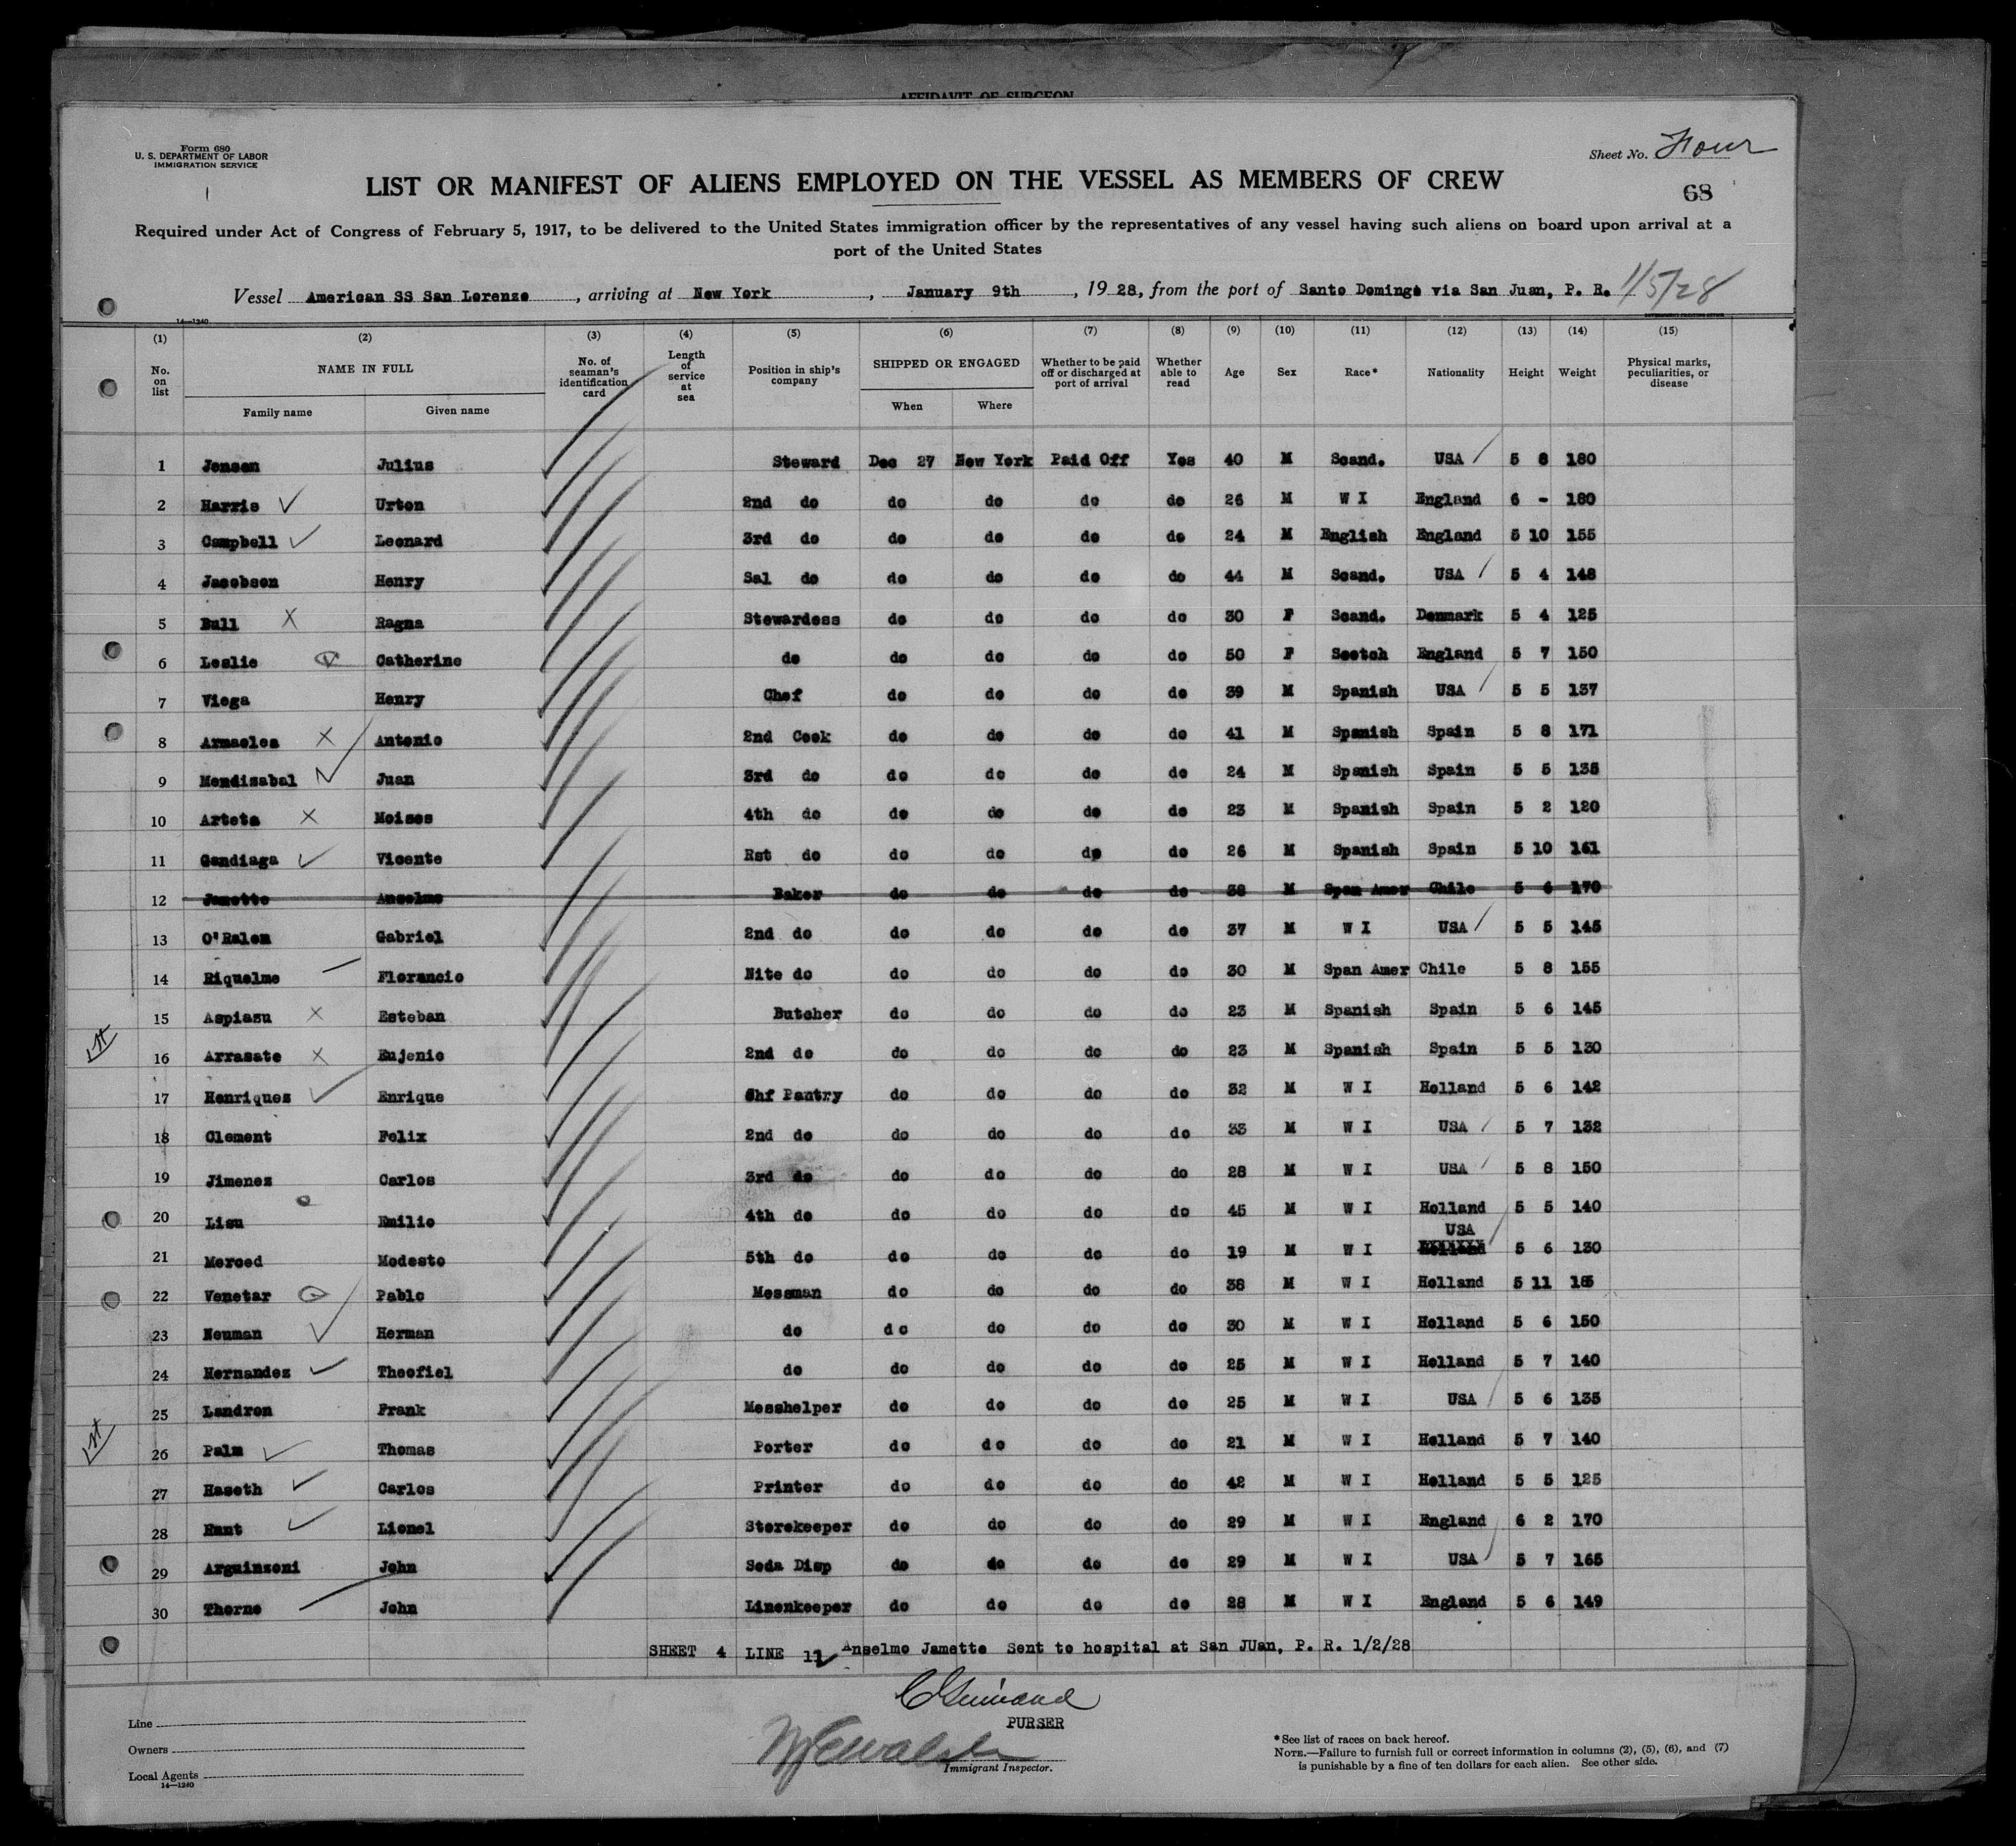 AFFIDAVIT OF SURGEON
Form 680
U. S. DEPARTMENT OF LABOR
IMMIGRATION SERVICE
Sheet No. Four
68
LIST OR MANIFEST OF ALIENS EMPLOYED ON THE VESSEL AS MEMBERS OF CREW
Required under Act of Congress of February 5, 1917, to be delivered to the United States immigration officer by the representatives of any vessel having such aliens on board upon arrival at a
port of the United States
Vessel American SS San Lorenzo, arriving at New York, January 9th, 1928, from the port of Santo Domingo via San Juan, P. R. 1/5/28
14—1240
(1) (2) (3) (4) (5) (6) (7) (8) (9) (10) (11) (12) (13) (14) (15)
No. on list NAME IN FULL Family name Given name No. of seaman's identification card Length of service at sea Position in ship's company SHIPPED OR ENGAGED When Where Whether to be paid off or discharged at port of arrival Whether able to read Age Sex Race* Nationality Height Weight Physical marks, peculiarities, or disease
1 Jensen Julius Steward Dec 27 New York Paid Off Yes 40 M Scand. USA 5 8 180
2 Harris Urton 2nd do do do do do 26 M W I England 6 - 180
3 Campbell Leonard 3rd do do do do do 24 M English England 5 10 155
4 Jacobson Henry Sal do do do do do 44 M Scand. USA 5 4 148
5 Bull Ragna Stewardess do do do do 30 F Scand. Denmark 5 4 125
6 Leslie Catherine do do do do do 50 F Scotch England 5 7 150
7 Viega Henry Chef do do do do 39 M Spanish USA 5 5 137
8 Armaolea Antonio 2nd Cook do do do do 41 M Spanish Spain 5 8 171
9 Mendizabal Juan 3rd do do do do do 24 M Spanish Spain 5 5 135
10 Arteta Moises 4th do do do do do 23 M Spanish Spain 5 2 120
11 Gandiaga Vicente Rst do do do do do 26 M Spanish Spain 5 10 161
12 Jamette Anselmo Baker do do do do 38 M Span Amer Chile 5 6 170
13 O'Ralem Gabriel 2nd do do do do do 37 M W I USA 5 5 145
14 Riquelme Florancio Nite do do do do do 30 M Span Amer Chile 5 8 155
15 Aspiasu Esteban Butcher do do do do 23 M Spanish Spain 5 6 145
16 Arrasate Eujenio 2nd do do do do do 23 M Spanish Spain 5 5 130
17 Henriquez Enrique Chf Pantry do do do do 32 M W I Holland 5 6 142
18 Clement Felix 2nd do do do do do 33 M W I USA 5 7 132
19 Jimenez Carlos 3rd do do do do do 28 M W I USA 5 8 150
20 Lisu Emilio 4th do do do do do 45 M W I Holland 5 5 140
USA
21 Merced Modesto 5th do do do do do 19 M W I Holland 5 6 130
22 Venetar Pablo Messman do do do do 38 M W I Holland 5 11 185
23 Neuman Herman do do do do do 30 M W I Holland 5 6 150
24 Hernandez Theofiel do do do do do 25 M W I Holland 5 7 140
25 Landron Frank Messhelper do do do do 25 M W I USA 5 6 135
26 Palm Thomas Porter do do do do 21 M W I Holland 5 7 140
27 Haseth Carlos Printer do do do do 42 M W I Holland 5 5 125
28 Hunt Lionel Storekeeper do do do do 29 M W I England 6 2 170
29 Arguinzoni John Soda Disp do do do do 29 M W I USA 5 7 165
30 Thorne John Linenkeeper do do do do 28 M W I England 5 6 149
SHEET 4 LINE 12 Anselmo Jamette Sent to hospital at San JUan, P. R. 1/2/28
PURSER
Immigrant Inspector.
Line
Owners
Local Agents
14—1240
*See list of races on back hereof.
NOTE.—Failure to furnish full or correct information in columns (2), (5), (6), and (7)
is punishable by a fine of ten dollars for each alien. See other side.